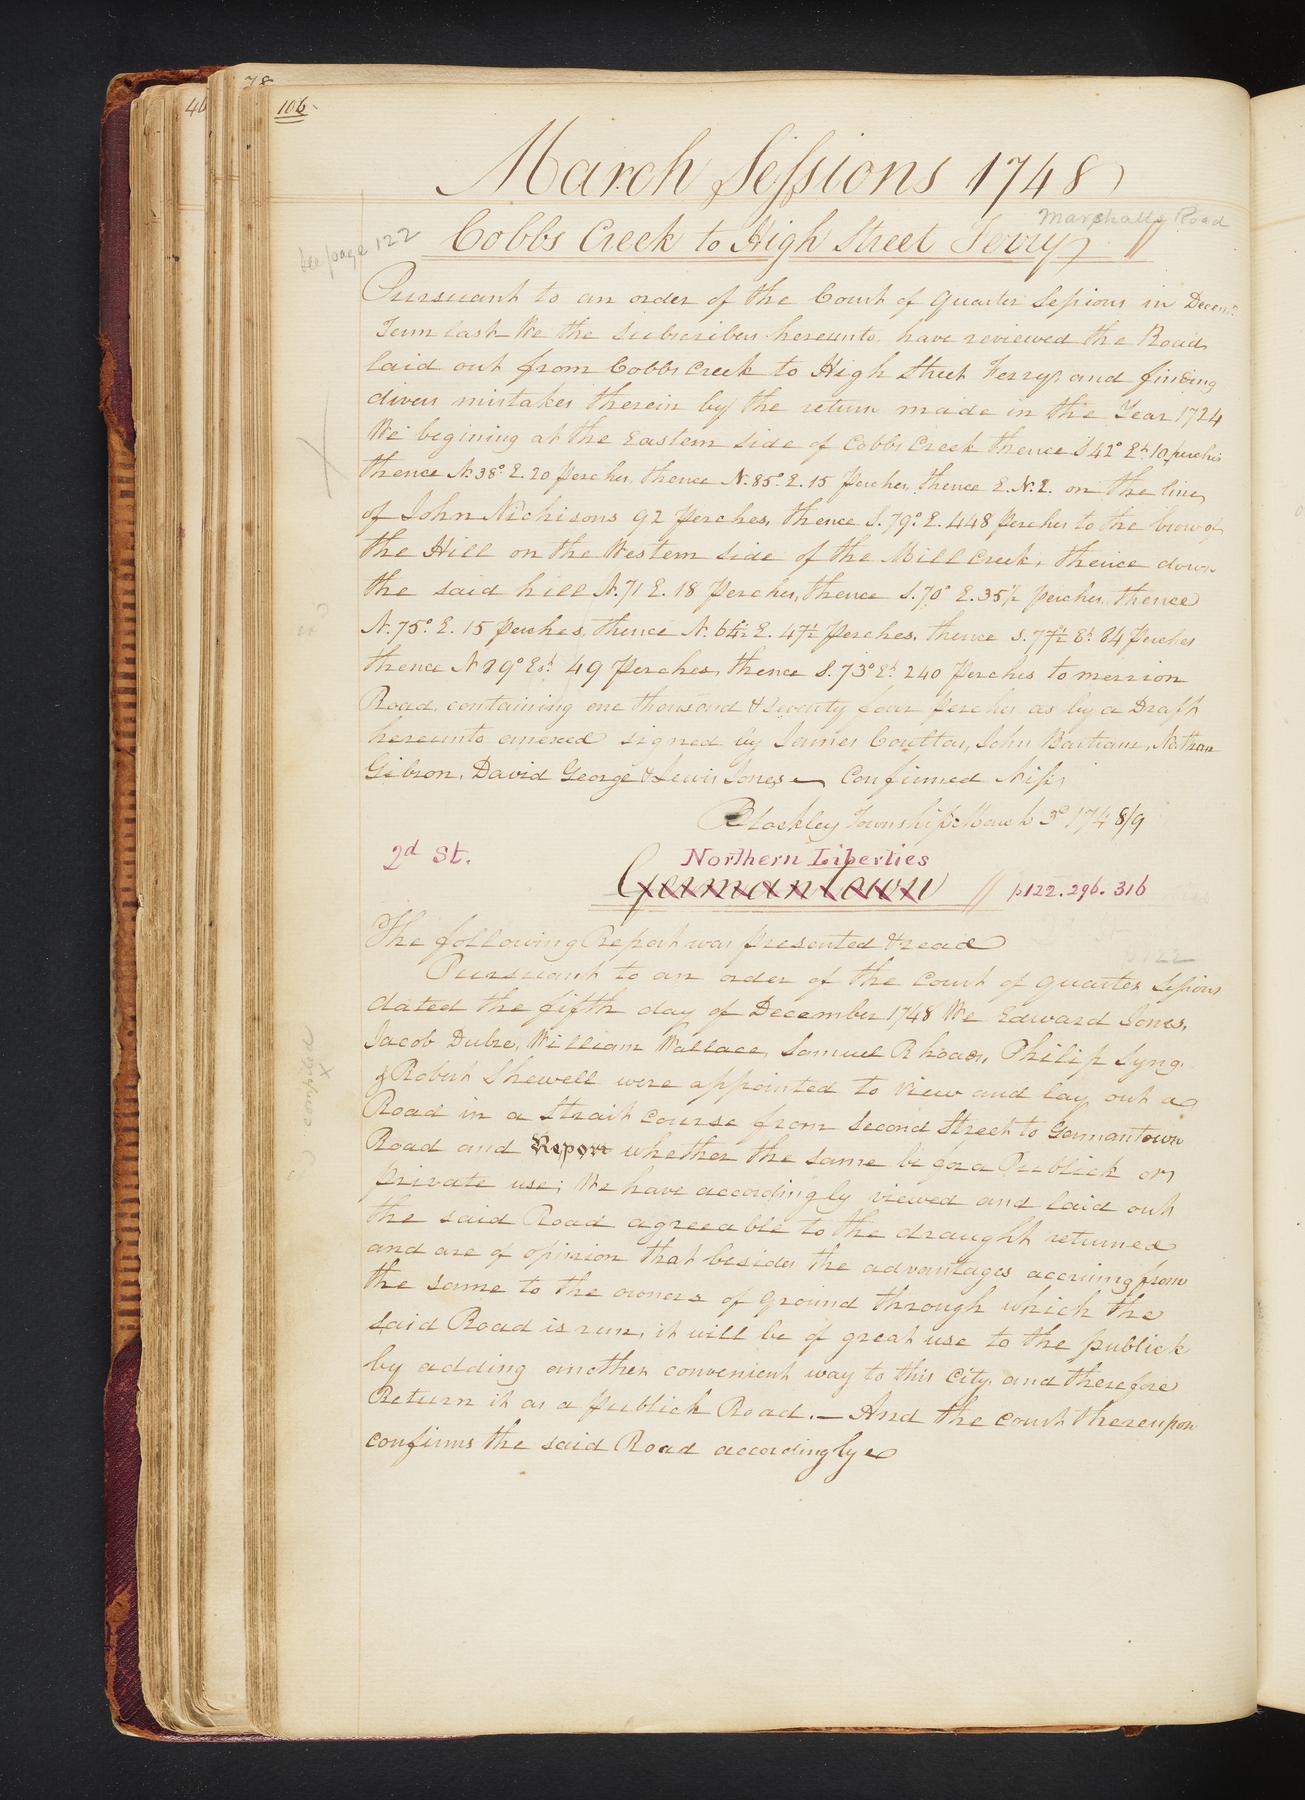 78
46
106.
March Sessions 1748
Marshalls Road
See page 122
Cobbs Creek to High Street Ferry //
Pursuant to an order of the Court of Quarter Sessions in Decemr.
Term last We the subscribers hereunto, have reviewed the Road
laid out from Cobbs Creek to High Street Ferry, and finding
divers mistakes therein by the return made in the Year 1724
We begining at the Eastern side of Cobbs Creek thence S 42° Et. 10 perches
thence N. 38° E. 20 perches, thence N. 85° E. 15 Perches, thence E. N. E. on the line
of John Nichisons 92 Perches, thence S. 79° E. 448 perches to the brow of
the Hill on the Western side of the Mill Creek, thence down
the said hill N. 71 E. 18 Perches, thence S. 70° E. 35½ perches, thence
N. 75° E. 15 perches, thence N. 64½ E. 47½ Perches, thence S. 77½ Et. 84 Perches
thence N 89° Est. 49 Perches, thence S. 73° Et. 240 Perches to merrion
Road, containing one thousand & seventy four perches as by a Draft
hereunto annexed signed by James Coultas, John Bartram, Nathan
Gibson, David George & Lewis Jones — Confirmed Nisi
Blockley Township March 3d 1748/9
2d St.
Northern Liberties
Germantown // p122. 296. 316
p122
The following report was presented & read
Pursuant to an order of the court of quarter Sessions
dated the fifth day of December 1748 We Edward Jones,
Jacob Dubre, William Wallace, Samuel Rhoads, Philip Syng
& Robert Shewell were appointed to view and lay out a
Road in a Strait course from Second Street to Germantown
Road and Report whether the same be for a Publick or
private use; We have accordingly viewed and laid out
the said Road agreeable to the draught returned
and are of opinion that besides the advantages accruing from
the same to the owners of ground through which the
said Road is run, it will be of great use to the publick
by adding another convenient way to this City, and therefore
Return it as a publick Road. — And the court thereupon
confirms the said Road accordingly